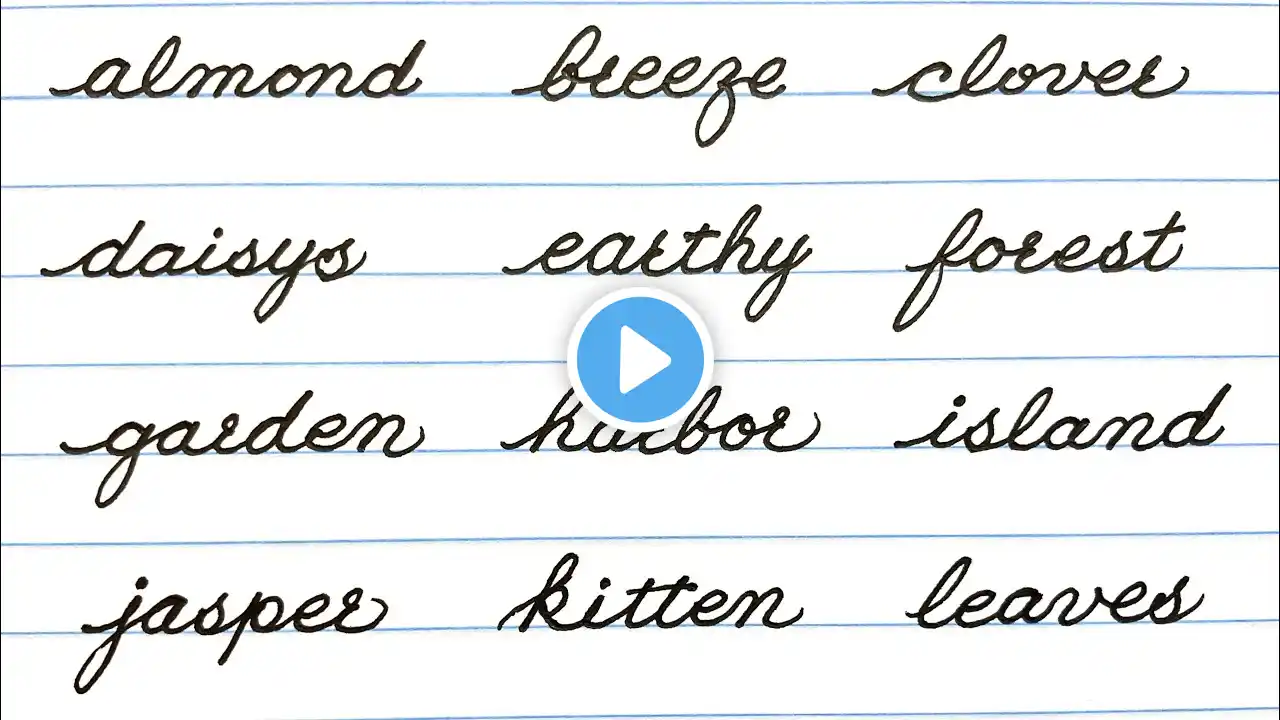 almond breeze clover
daisys earthy forest
garden harbor island
jasper kitten leaves